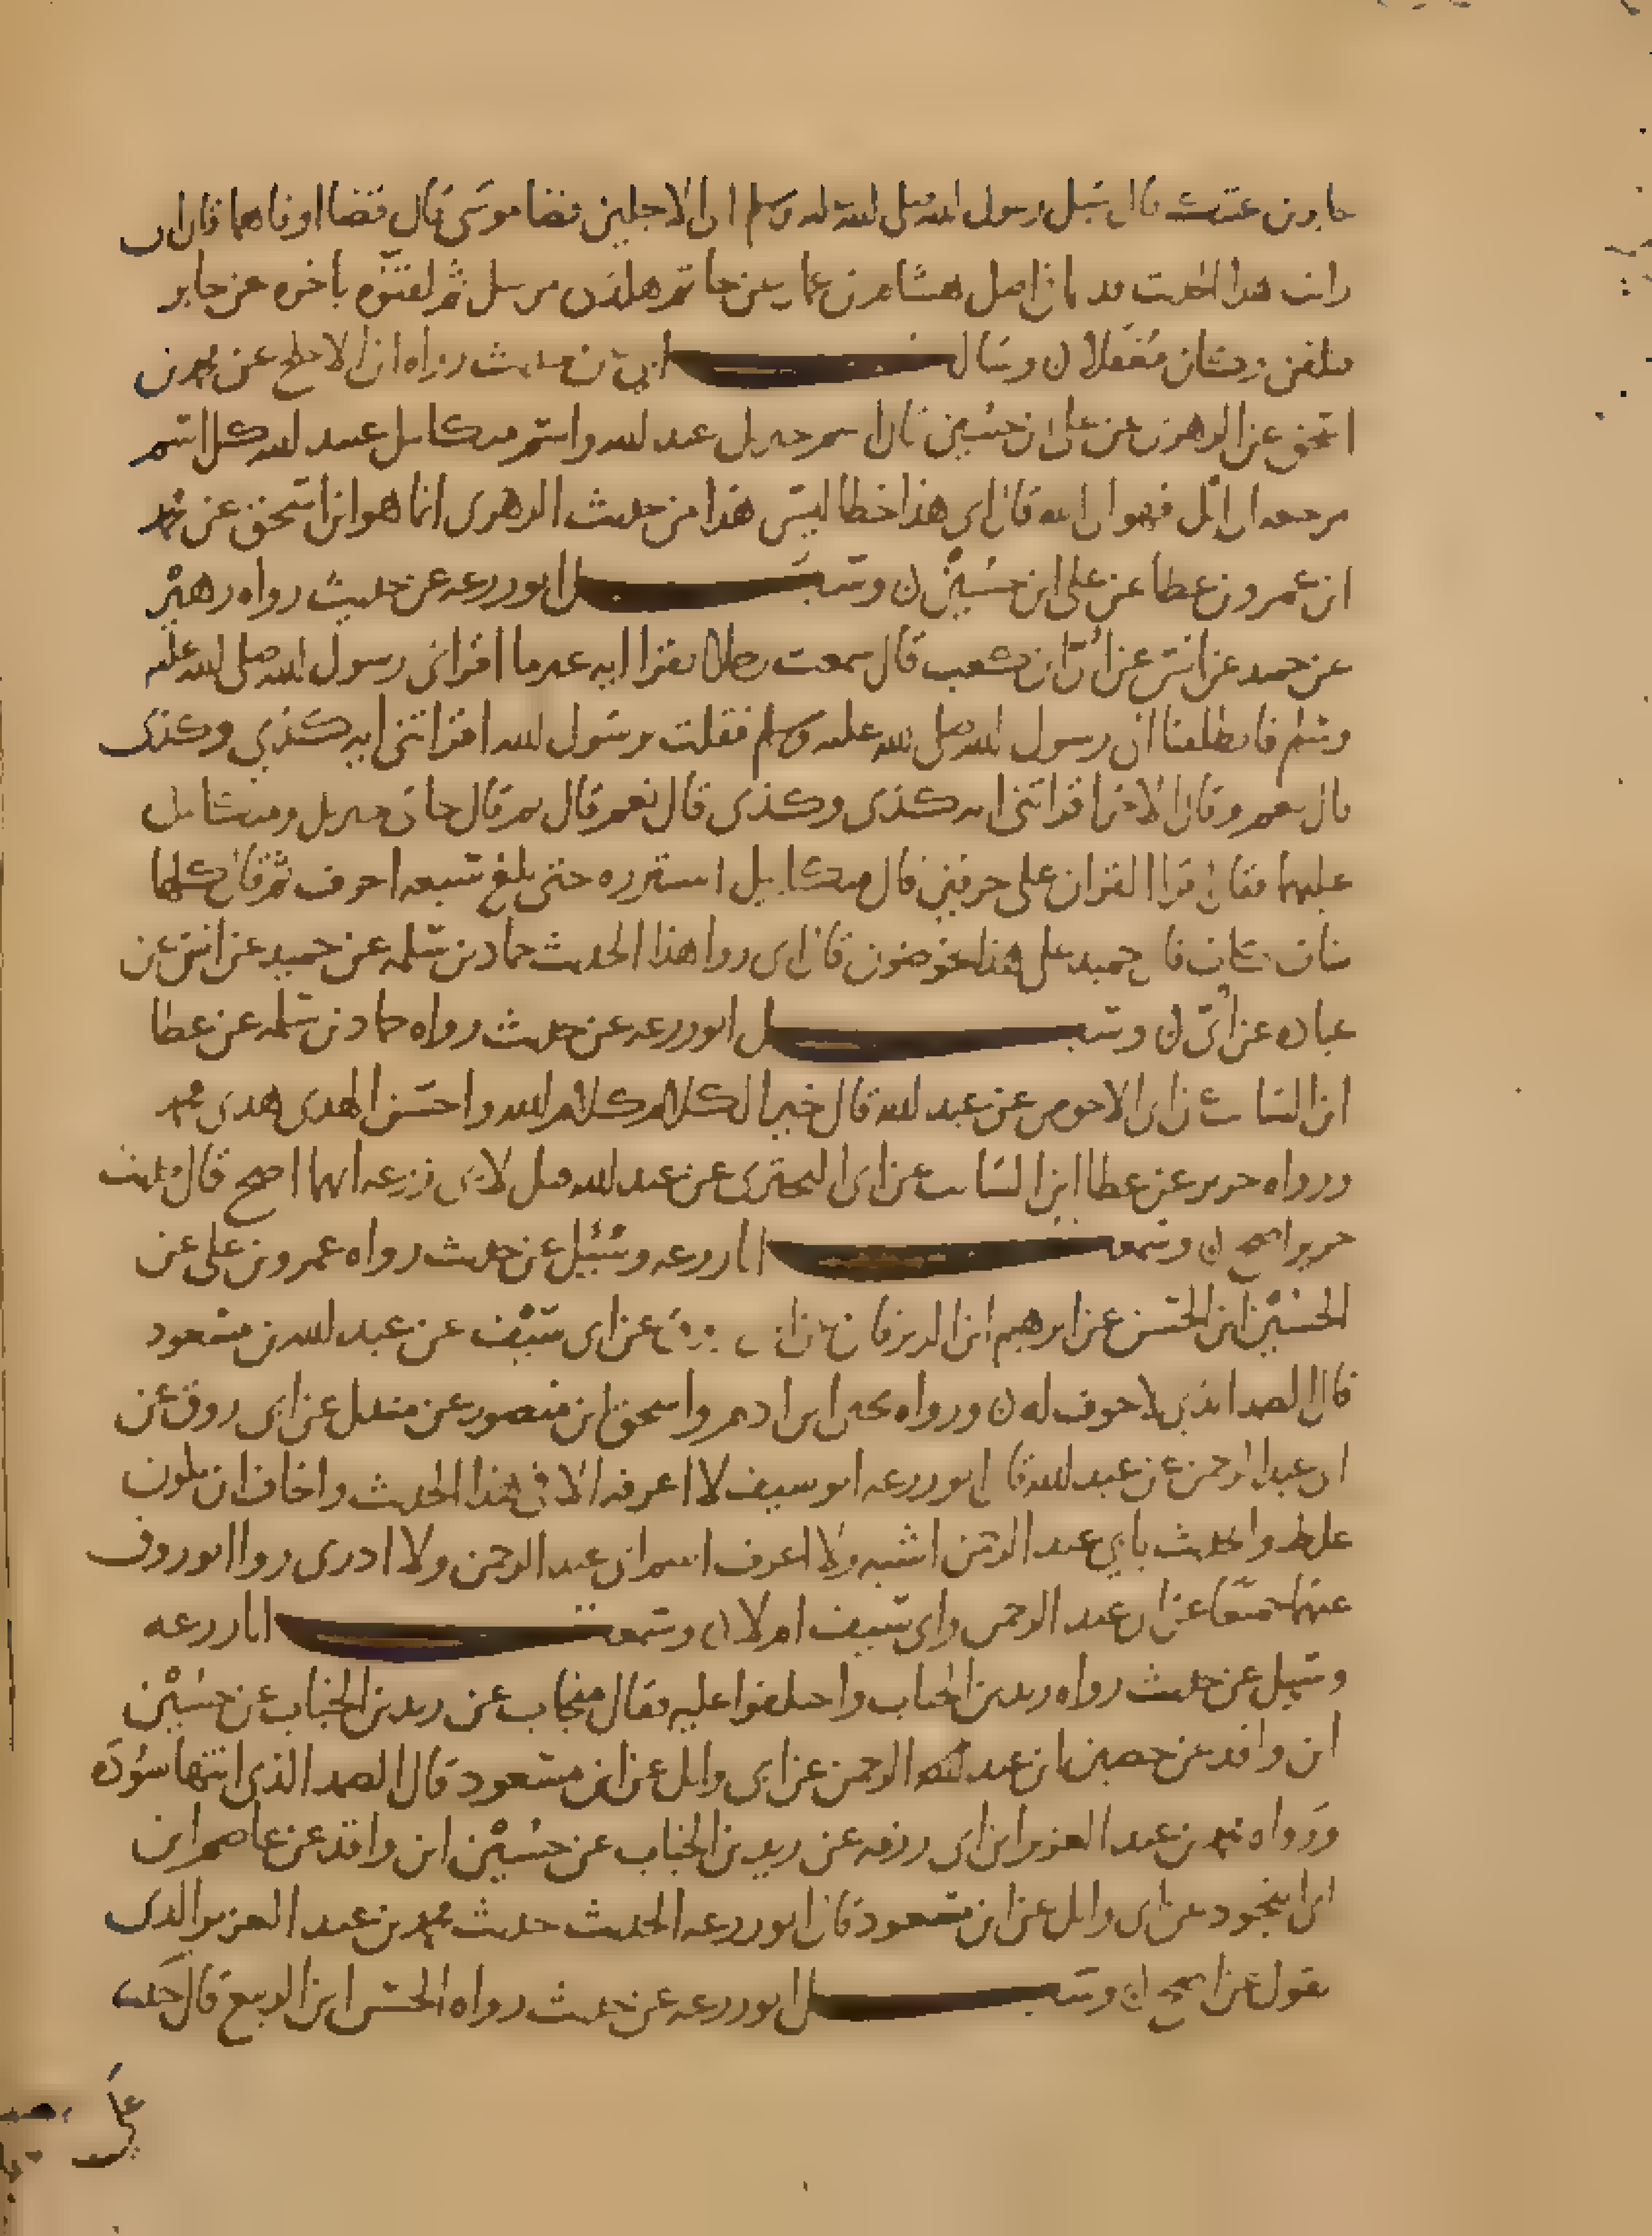 جابر بن عتيك قال سئل رسول الله صلى الله عليه وسلم اى الاجلين قضا موسى قال قضا اوفاهما قال ابى
رايت هذا الحديث قديما فى اصل هشام بن عمار عن حاتم هكذى مرسل ثم لقنوه باخره عن جابر
فتلقن وكان مغفلا ن وسالت ابى عن حديث رواه ابن الاجلح عن محمد بن
اسحق عن الزهرى عن على بن حسين قال اسم جبريل عبد الله واسم ميكاىل عبيد الله كل اسم
مرجعه الى ايل فهو الى الله قال ابى هذا خطا ليس هذا من حديث الزهرى انما هو ابن اسحق عن محمد
ابن عمرو بن عطا عن على ابن حسين ن وسئل ابو زرعه عن حديث رواه زهير
عن حميد عن انس عن ابى ابن كعب قال سمعت رجلا يقرا ايه غير ما اقرانى رسول الله صلى الله عليه
وسلم فانطلقنا الى رسول الله صلى الله عليه وسلم فقلت يرسول الله اقراتنى ايه كذى وكذى
قال نعم وقال الاخر اقراتنى ايه كذى وكذى قال نعم قال ثم قال جانى جبريل وميكايل
عليهما فقال اقرا القران على حرفين قال ميكاييل استزده حتى بلغ سبعه احرف ثم قال كلها
شاف كاف قال حميد على هذا قال ابى روا هذا الحديث حماد بن سلمه عن حميد عن انس عن
عباده عن ابى ن وسئل ابو زرعه عن حديث رواه حماد بن سلمه عن عطا
ابن السايب عن ابى الاحوص عن عبد الله قال خير الكلام كلام الله واحسن الهدى هدى محمد
ورواه جرير عن عطا ابن السايب عن ابى البخترى عن عبد الله قيل لابى زرعه ايهما اصح قال حديث
جرير اصح ن وسمعت ابا زرعه وسئيل عن حديث رواه عمرو بن على عن
الحسين ابن الحسن عن ابرهيم ابن الزبرقان عن ابى روق عن ابى سيف عن عبد الله بن مسعود
قال الصمد الذى لا جوف له ن ورواه يحيى ابن ادم واسحق ابن منصور عن مندل عن ابى روق عن
ابى عبد الرحمن عن عبد الله قال ابو زرعه ابو سيف لا اعرفه الا فى هذا الحديث واخاف ان يكون
غلط والحديث بابى عبد الرحمن اشبه ولا اعرف اسم ابى عبد الرحمن ولا ادرى روا ابو روق
عنهما جميعا عن ابى عبد الرحمن وابى سيف ام لا ن وسمعت ابا زرعه
وسيل عن حديث رواه زيد بن الحباب واختلفوا عليه فقال منجاب عن زيد بن الحباب عن حسين
ابن واقد عن حصين ابن عبد الرحمن عن ابى وايل عن ابن مسعود قال الصمد الذى انتها سودده
ورواه محمد بن عبد العزيز ابن ابى رزمه عن زيد بن الحباب عن حسين ابن واقد عن عاصم ابن
ابى النجود عن ابى وايل عن ابن مسعود قال ابو زرعه الحديث حديث محمد بن عبد العزيز الذى
يقول عن اصح ن وسئل ابو زرعه عن حديث رواه الحسن ابن الربيع قال حدثنا
على